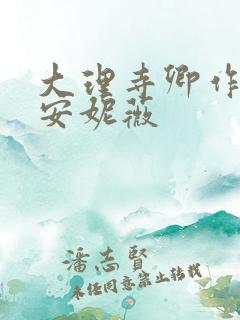 大理寺卿作
安妮薇
潘志賢
未经同意禁止转载